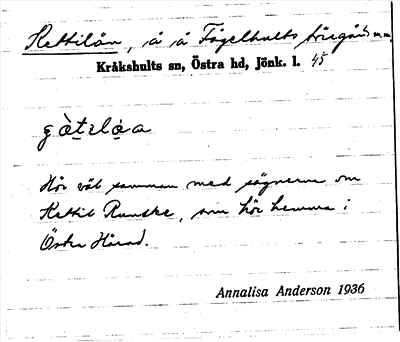 Kettilån, å å Fågelhults böregård m.m.
Kråkshults sn, Östra hd, Jönk. l. 45
g
Hör väl samman med sägnerna om
Kettil Runske, som hör hemma i
Östra Härad.
Annalisa Anderson 1936